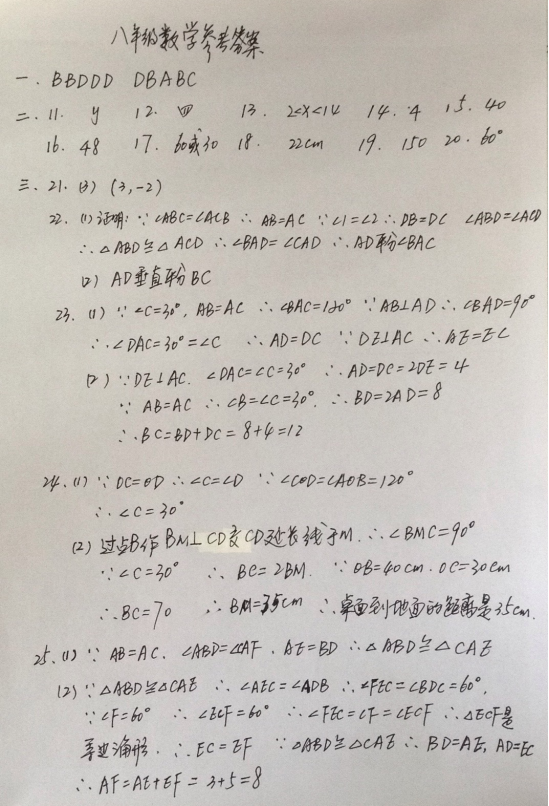 八年级数学参考答案
一. BBDDD DBABC
二. 11. y 12. 四 13. 2<x<14 14. 4 15. 40
16. 48 17. 60或30 18. 22cm 19. 150 20. 60°
三. 21. (3) (3,-2)
22. (1) 证明: ∵∠ABC=∠ACB ∴AB=AC ∵∠1=∠2 ∴DB=DC ∠ABD=∠ACD
∴△ABD≌△ACD ∴∠BAD=∠CAD ∴AD平分∠BAC
(2) AD垂直平分BC
23. (1) ∵∠C=30°, AB=AC ∴∠BAC=120° ∵AB⊥AD ∴∠BAD=90°
∴∠DAC=30°=∠C ∴AD=DC ∵DE⊥AC ∴AE=EC
(2) ∵DE⊥AC. ∠DAC=∠C=30° ∴AD=DC=2DE=4
∵AB=AC ∴∠B=∠C=30°. ∴BD=2AD=8
∴BC=BD+DC=8+4=12
24. (1) ∵OC=OD ∴∠C=∠D ∵∠COD=∠AOB=120°
∴∠C=30°
(2) 过点B作BM⊥CD交CD延长线于M. ∴∠BMC=90°
∵∠C=30° ∴BC=2BM. ∵OB=40cm. OC=30cm
∴BC=70 ∴BM=35cm ∴桌面到地面的距离是35cm.
25. (1) ∵AB=AC. ∠ABD=∠CAF. AE=BD ∴△ABD≌△CAE
(2) ∵△ABD≌△CAE ∴∠AEC=∠ADB ∴∠FEC=∠BDC=60°,
∵∠F=60° ∴∠ECF=60° ∴∠FEC=∠F=∠ECF ∴△ECF是
等边三角形. ∴EC=EF ∵△ABD≌△CAE ∴BD=AE, AD=EC
∴AF=AE+EF=3+5=8